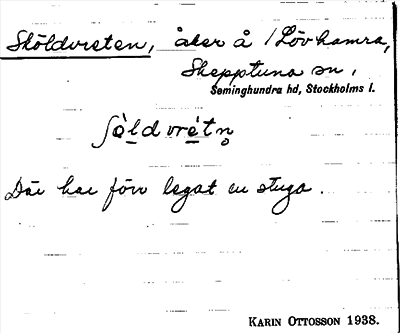 Sköldvreten, åker å 1 Lövhamra,
Skepptuna sn,
Seminghundra hd, Stockholms l.
Där har förr legat en stuga.
KARIN OTTOSSON 1938.